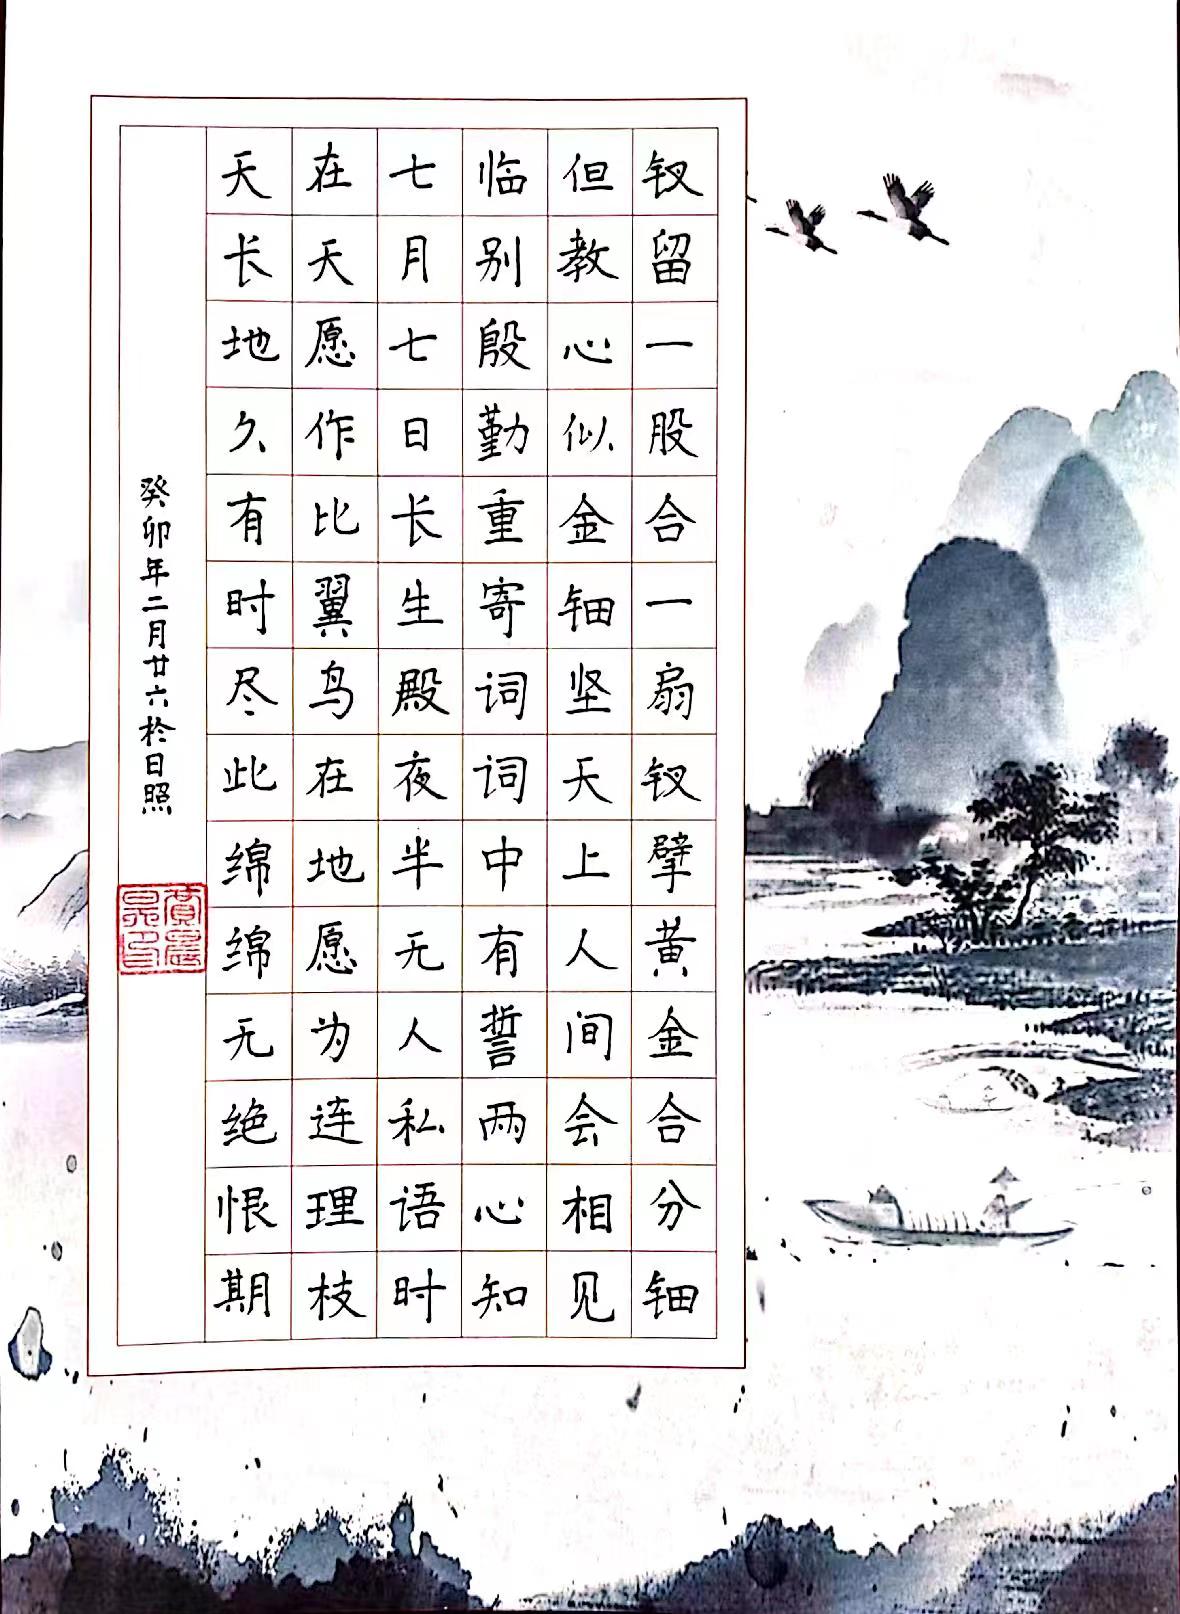 钗留一股合一扇钗擘黄金合分钿
但教心似金钿坚天上人间会相见
临别殷勤重寄词词中有誓两心知
七月七日长生殿夜半无人私语时
在天愿作比翼鸟在地愿为连理枝
天长地久有时尽此绵绵无绝恨期
癸卯年二月廿六於日照